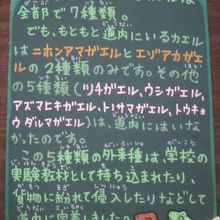 全部で7種類。
でも、もともと道内にいるカエル
はニホンアマガエルとエゾアカガエ
ルの2種類のみです。その他
の5種類(ツチガエル,ウシガエル,
アズマヒキガエル,トノサマガエル,トウキョ
ウダルマガエル)は、道内にはいな
かったのです。
この5種類の外来種は、学校の
実験教科として持ち込まれたり、
貨物に紛れて侵入したりなどして
道内に定着しました。